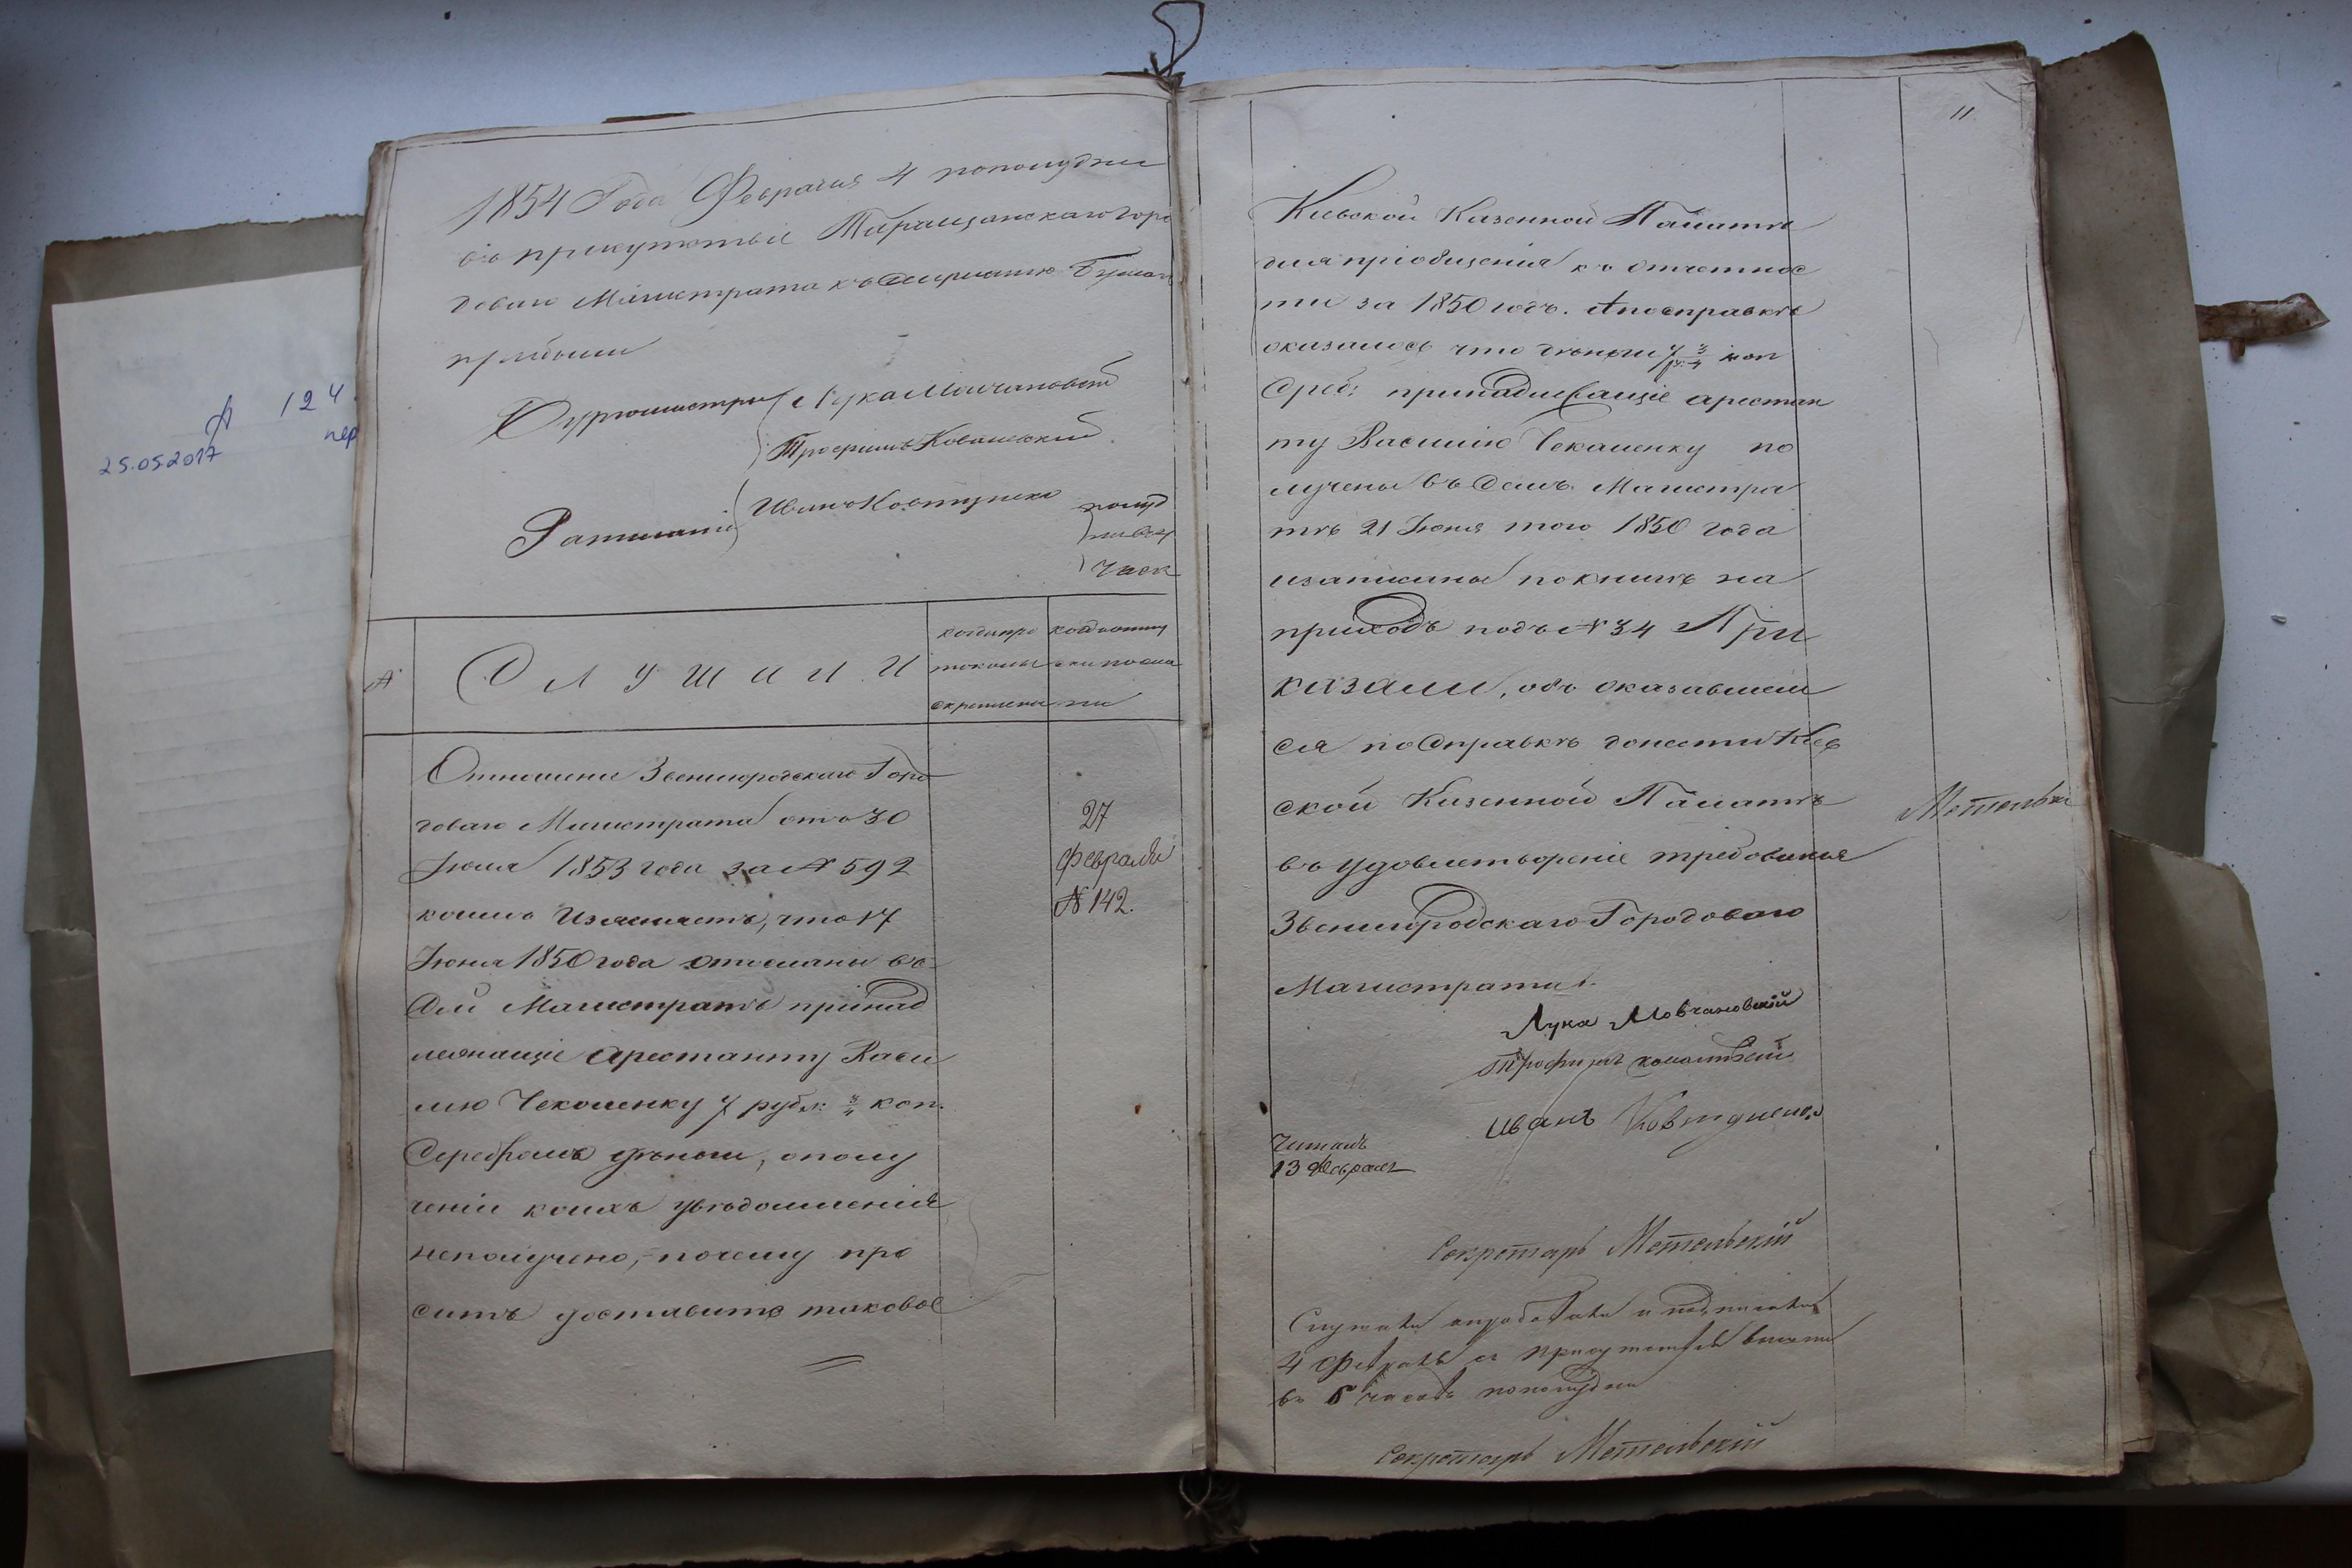 1854 Года Февраля 4 пополудни
въ присутствіе Таращанскаго Горо
доваго Магистрата къ слушанию Бумагъ
прибыли
Бургомистры Лука Молчановскій
Трофимъ Ковальскій
Ратманъ Иванъ Ковтуненко
полуд
ни въ 4
часа
№
СЛУШАЛИ
когда про
токолы
скреплены
когда копіи
сли посла
ны
Отношение Звенигородскаго Горо
доваго Магистрата отъ 30
Июля 1853 года за № 592
коимъ Изъясняетъ, что 17
Июня 1850 года отосланы въ
Сей Магистратъ принад
лежащіе Арестанту Васи
лію Чекаленку 7 рубл: 3/4 коп.
Серебромъ деньги, о полу
ченіи коихъ увѣдомленія
неполучено, - почему про
ситъ доставить таковое
27
Февраля
№ 142.
11
Кіевской Казенной Палатѣ
для пріобщенія къ отчетнос
ти за 1850 годъ. А по справкѣ
оказалось что деньги 7 ру. 3/4 коп
Среб: принадлежащіе арестан
ту Василію Чекаленку по
лучены въ Семъ Магистра
тѣ 21 Июня того 1850 года
и записаны по книгѣ на
приходъ подъ № 34 При
казали, объ оказавшем
ся по Справкѣ донести Кіев
ской Казенной Палатѣ
въ удовлетвореніе требованія
Звенигородскаго Городоваго
Магистрата.
Метельск
Лука Мовчановскій
Трофимъ Ковальскій
Иванъ Ковтуненко
Читалъ
13 Февраля
Секретарь Метельскій
Слушали и подписали
4 Февраля а Присутствіе вышли
въ 6 часовъ пополудни
Секретарь Метельскій
№ 124
пер
25.05.2017